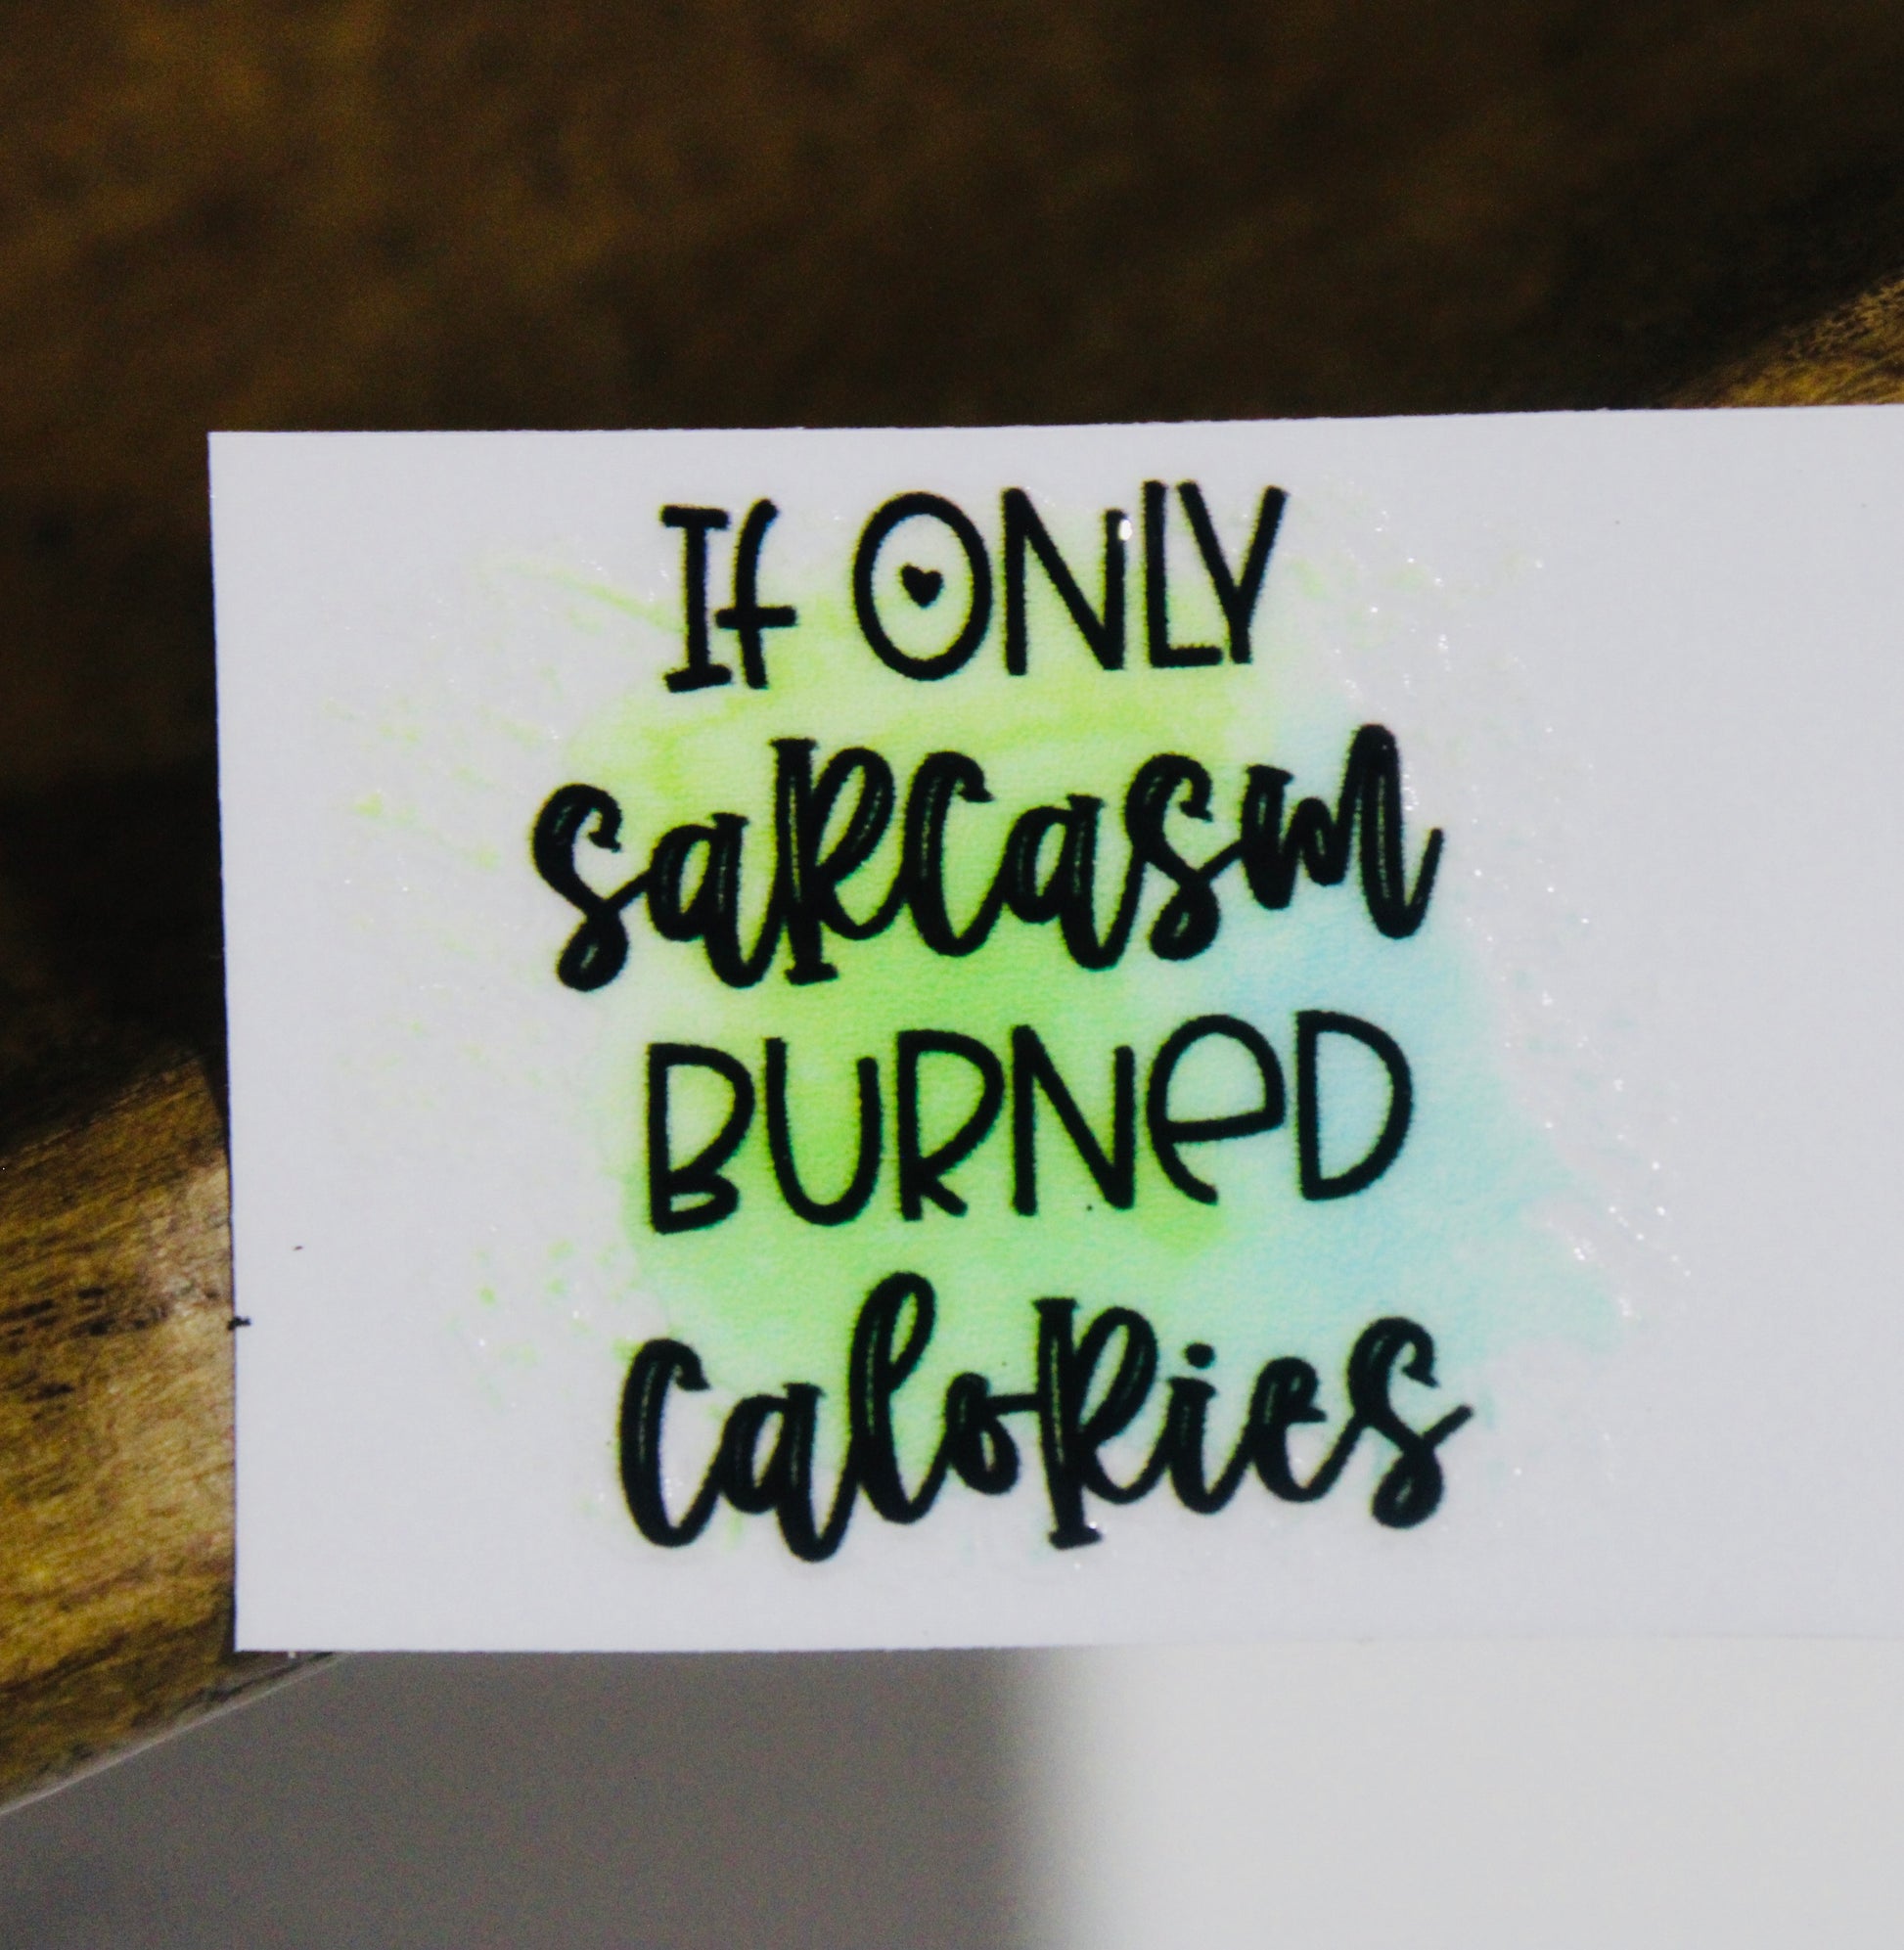 If ONLY
saRcasm
BURNeD
caloRies